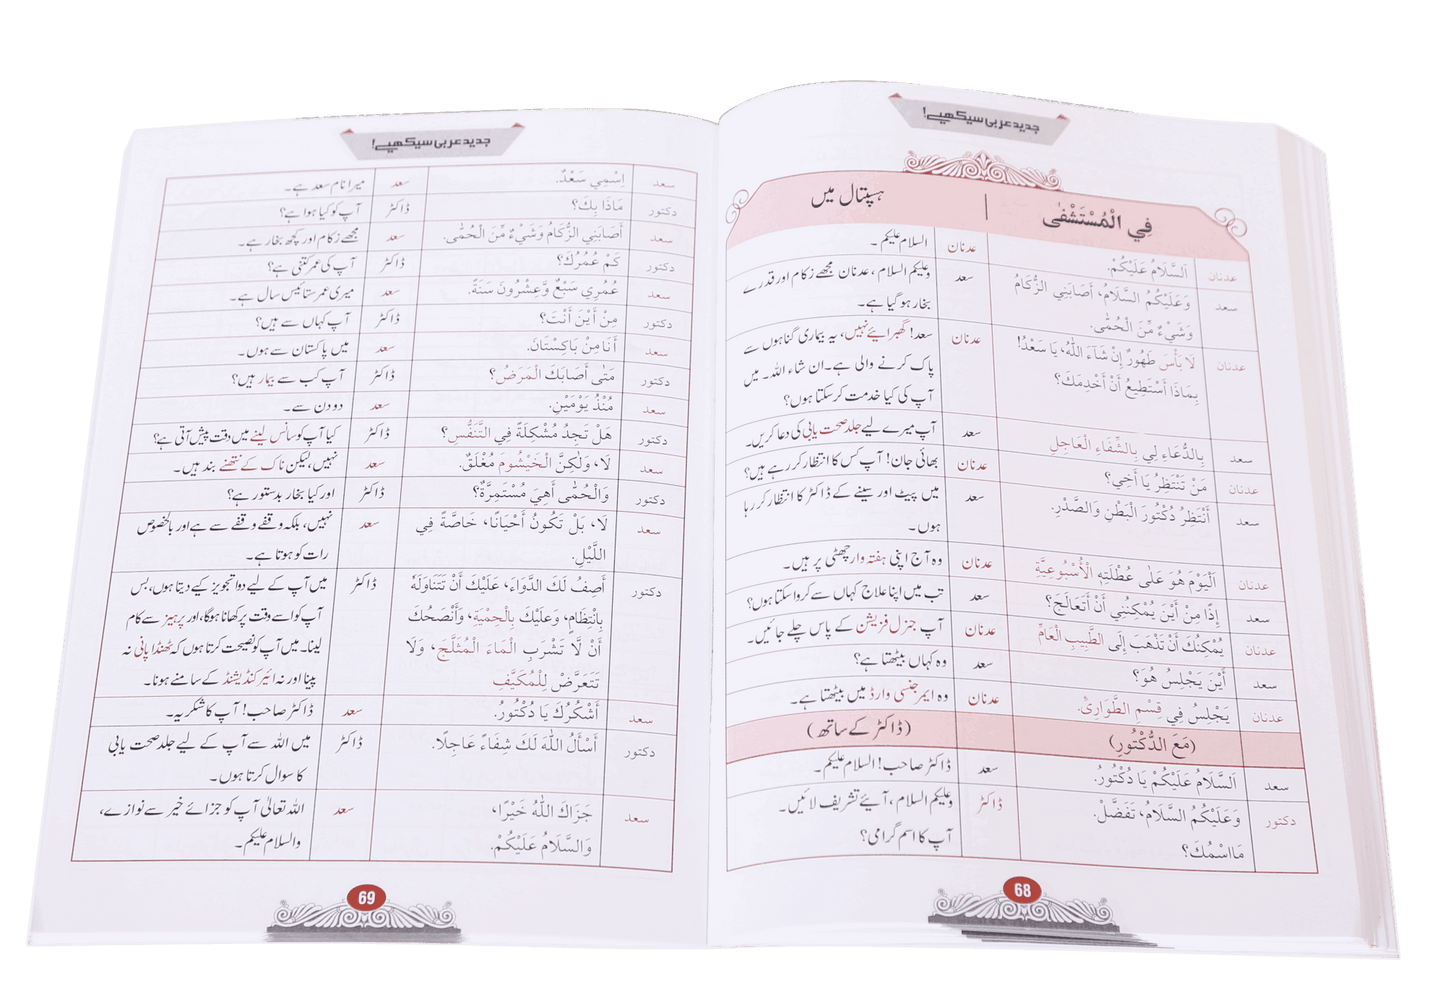 جدید عربی سیکھیے!
فِي الْمُسْتَشْفٰى | ہسپتال میں
عدنان اَلسَّلَامُ عَلَيْكُمْ. عدنان السلام علیکم۔
سعد وَعَلَيْكُمُ السَّلَامُ، أَصَابَنِي الزُّكَامُ سعد وعلیکم السلام، عدنان مجھے زکام اور قدرے
وَشَيْءٌ مِّنَ الْحُمّٰى. بخار ہو گیا ہے۔
عدنان لَا بَأْسَ طَهُورٌ إِنْ شَآءَ اللّٰهُ، يَا سَعْدُ! عدنان سعد! گھبرائیے نہیں، یہ بیماری گناہوں سے
بِمَاذَا أَسْتَطِيعُ أَنْ أَخْدِمَكَ؟ پاک کرنے والی ہے۔ ان شاء اللہ۔ میں
آپ کی کیا خدمت کرسکتا ہوں؟
سعد بِالدُّعَاءِ لِي بِالشِّفَاءِ الْعَاجِلِ سعد آپ میرے لیے جلد صحت یابی کی دعا کریں۔
عدنان مَنْ تَنْتَظِرُ يَا أَخِي؟ عدنان بھائی جان! آپ کس کا انتظار کر رہے ہیں؟
سعد أَنْتَظِرُ دُكْتُورَ الْبَطْنِ وَالصَّدْرِ. سعد میں پیٹ اور سینے کے ڈاکٹر کا انتظار کر رہا
ہوں۔
عدنان اَلْيَوْمَ هُوَ عَلٰى عُطْلَتِهِ الْأُسْبُوعِيَّةِ عدنان وہ آج اپنی ہفتہ وار چھٹی پر ہیں۔
سعد إِذًا مِنْ أَيْنَ يُمْكِنُنِي أَنْ أَتَعَالَجَ؟ سعد تب میں اپنا علاج کہاں سے کروا سکتا ہوں؟
عدنان يُمْكِنُكَ أَنْ تَذْهَبَ إِلَى الطَّبِيبِ الْعَامِّ عدنان آپ جنرل فزیشن کے پاس چلے جائیں۔
سعد أَيْنَ يَجْلِسُ هُوَ؟ سعد وہ کہاں بیٹھتا ہے؟
عدنان يَجْلِسُ فِي قِسْمِ الطَّوَارِئِ. عدنان وہ ایمرجنسی وارڈ میں بیٹھتا ہے۔
(مَعَ الدُّكْتُورِ) (ڈاکٹر کے ساتھ)
سعد اَلسَّلَامُ عَلَيْكُمْ يَا دُكْتُورُ. سعد ڈاکٹر صاحب! السلام علیکم۔
دكتور وَعَلَيْكُمُ السَّلَامُ، تَفَضَّلْ. ڈاکٹر وعلیکم السلام، آیئے تشریف لائیں۔
مَااسْمُكَ؟ آپ کا اسم گرامی؟
68
جدید عربی سیکھیے!
سعد اِسْمِي سَعْدٌ. سعد میرا نام سعد ہے۔
دكتور مَاذَا بِكَ؟ ڈاکٹر آپ کو کیا ہوا ہے؟
سعد أَصَابَنِي الزُّكَامُ وَشَيْءٌ مِّنَ الْحُمّٰى. سعد مجھے زکام اور کچھ بخار ہے۔
دكتور كَمْ عُمُرُكَ؟ ڈاکٹر آپ کی عمر کتنی ہے؟
سعد عُمُرِي سَبْعٌ وَّعِشْرُونَ سَنَةً. سعد میری عمر ستائیس سال ہے۔
دكتور مِنْ أَيْنَ أَنْتَ؟ ڈاکٹر آپ کہاں سے ہیں؟
سعد أَنَا مِنْ بَاكِسْتَانَ. سعد میں پاکستان سے ہوں۔
دكتور مَتٰى أَصَابَكَ الْمَرَضُ؟ ڈاکٹر آپ کب سے بیمار ہیں؟
سعد مُنْذُ يَوْمَيْنِ. سعد دو دن سے۔
دكتور هَلْ تَجِدُ مُشْكِلَةً فِي التَّنَفُّسِ؟ ڈاکٹر کیا آپ کو سانس لینے میں دقت پیش آتی ہے؟
سعد لَا، وَلٰكِنَّ الْخَيْشُومَ مُغْلَقٌ. سعد نہیں، لیکن ناک کے نتھنے بند ہیں۔
دكتور وَالْحُمّٰى أَهِيَ مُسْتَمِرَّةٌ؟ ڈاکٹر اور کیا بخار بدستور ہے؟
سعد لَا، بَلْ تَكُونُ أَحْيَانًا، خَاصَّةً فِي سعد نہیں، بلکہ وقفے وقفے سے ہے اور بالخصوص
اللَّيْلِ. رات کو ہوتا ہے۔
دكتور أَصِفُ لَكَ الدَّوَاءَ، عَلَيْكَ أَنْ تَتَنَاوَلَهٗ ڈاکٹر میں آپ کے لیے دوا تجویز کیے دیتا ہوں، بس
بِانْتِظَامٍ، وَعَلَيْكَ بِالْحِمْيَةِ، وَأَنْصَحُكَ آپ کو اسے وقت پر کھانا ہوگا، اور پرہیز سے کام
أَنْ لَّا تَشْرَبِ الْمَاءَ الْمُثَلَّجَ، وَلَا لینا۔ میں آپ کو نصیحت کرتا ہوں کہ ٹھنڈا پانی نہ
تَتَعَرَّضْ لِلْمُكَيَّفِ پینا اور نہ ائیر کنڈیشنڈ کے سامنے ہونا۔
سعد أَشْكُرُكَ يَا دُكْتُورُ. سعد ڈاکٹر صاحب! آپ کا شکریہ۔
دكتور أَسْأَلُ اللّٰهَ لَكَ شِفَاءً عَاجِلًا. ڈاکٹر میں اللہ سے آپ کے لیے جلد صحت یابی
کا سوال کرتا ہوں۔
سعد جَزَاكَ اللّٰهُ خَيْرًا، سعد اللہ تعالیٰ آپ کو جزائے خیر سے نوازے،
وَالسَّلَامُ عَلَيْكُمْ. والسلام علیکم۔
69